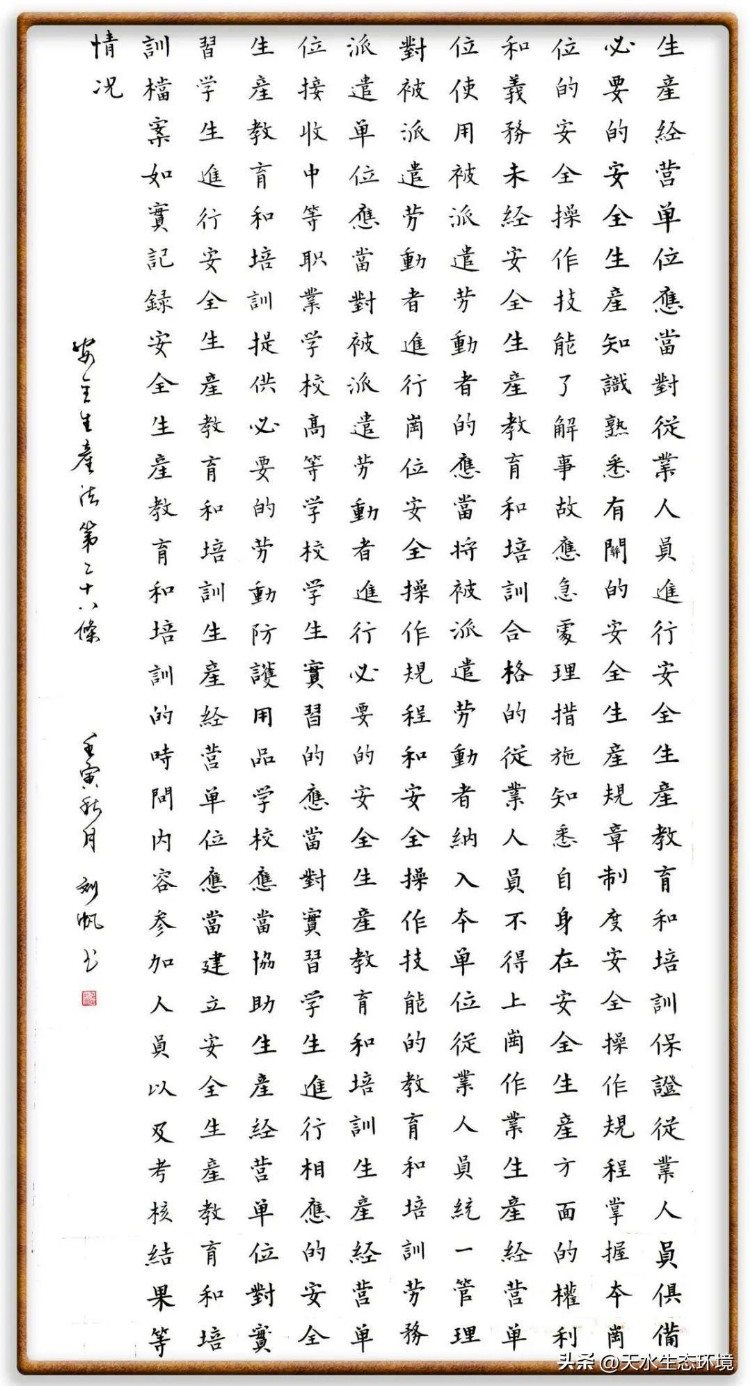 生產经营单位應當對従業人員進行安全生產教育和培訓保證従業人員俱備
必要的安全生產知識熟悉有關的安全生產規章制度安全操作規程掌握本崗
位的安全操作技能了解事故應急處理措施知悉自身在安全生產方面的權利
和義務未经安全生產教育和培訓合格的従業人員不得上崗作業生產经营单
位使用被派遣劳動者的應當将被派遣劳動者納入本单位従業人員統一管理
對被派遣劳動者進行崗位安全操作規程和安全操作技能的教育和培訓劳務
派遣单位應當對被派遣劳動者進行必要的安全生產教育和培訓生產经营单
位接收中等职業学校高等学校学生實習的應當對實習学生進行相應的安全
生產教育和培訓提供必要的劳動防護用品学校應當協助生產经营单位對實
習学生進行安全生產教育和培訓生產经营单位應當建立安全生產教育和培
訓檔案如實記録安全生產教育和培訓的時間内容参加人員以及考核結果等
情况
安全生產法第二十八條 壬寅秋月 刘帆书
头条 @天水生态环境